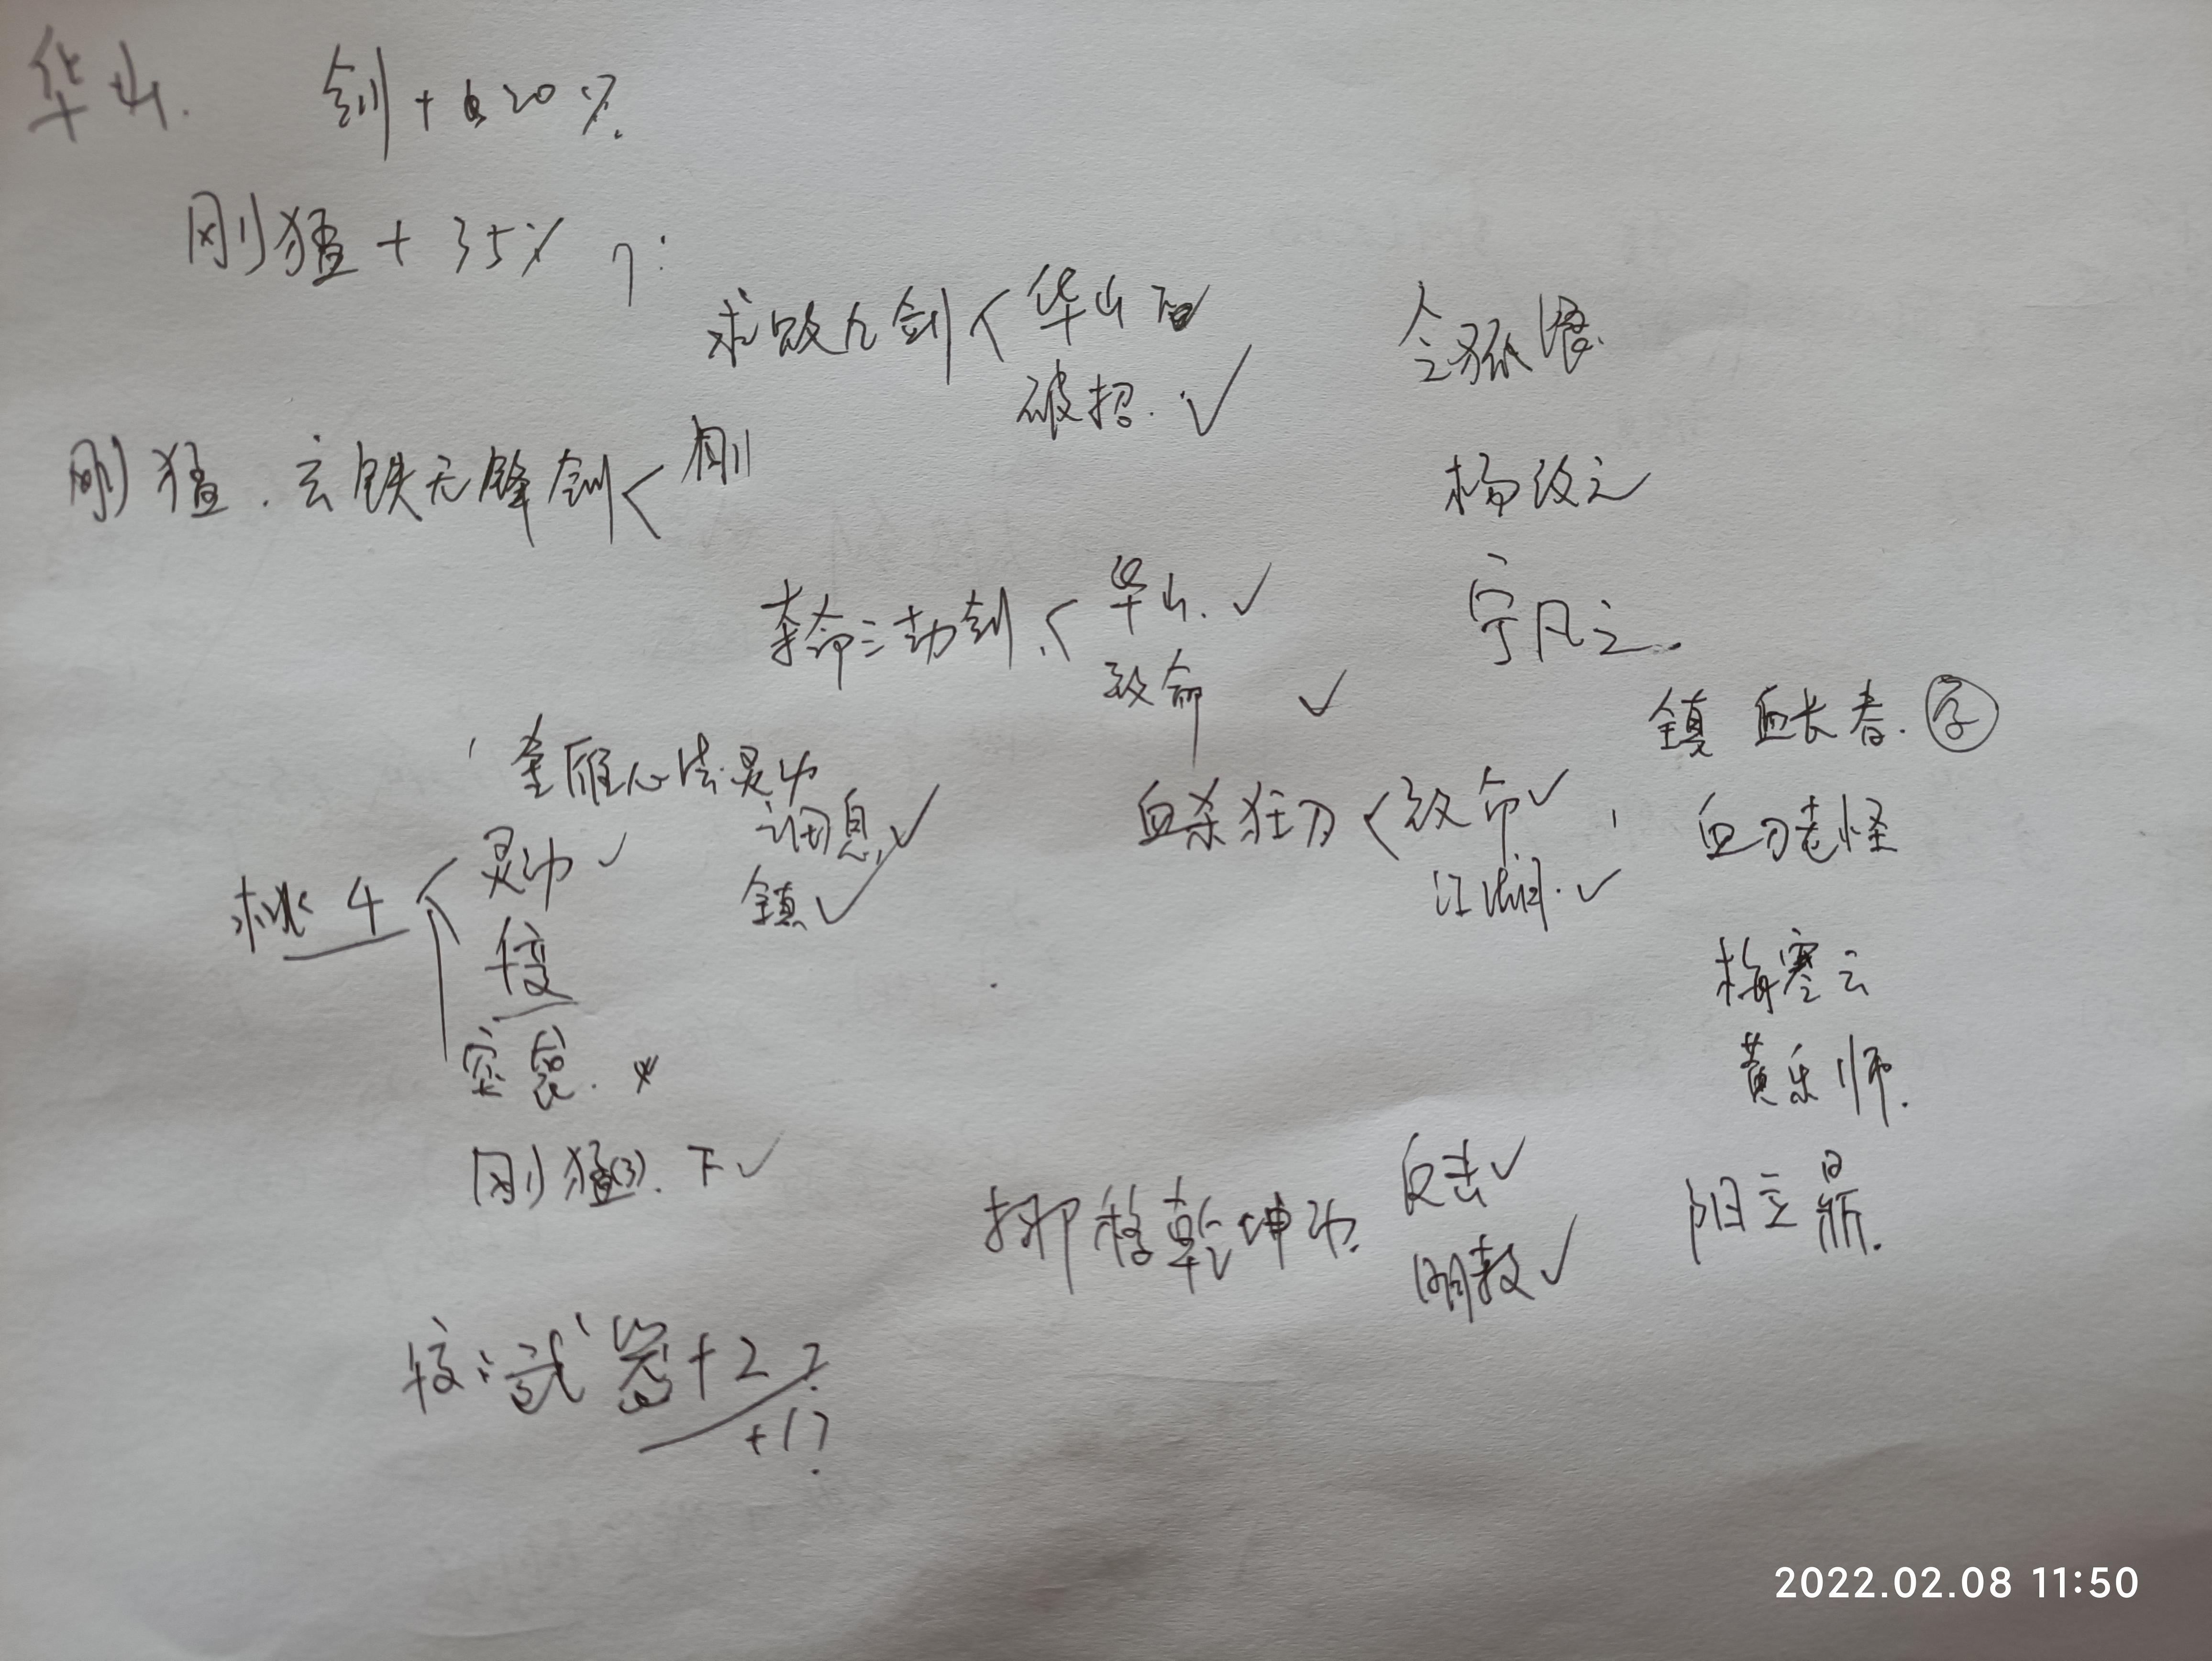 华山. 剑+20%.
刚猛+35%
求败九剑<华山
破招.✓
令狐
刚猛.玄铁无锋剑<刚
杨改之
夺命三劫剑.<华山.✓
致命 ✓
宁凡之.
镇 血长春.
金雁心法灵动
调息✓
镇✓
血杀狂刀<致命✓
江湖.✓
血刀老怪
桃4<灵动✓
梅寒云
黄乐师.
刚猛(3).下✓
挪移乾坤功.
反击✓
明教✓
阳立鼎.
武器+2?
+1?
2022.02.08 11:50